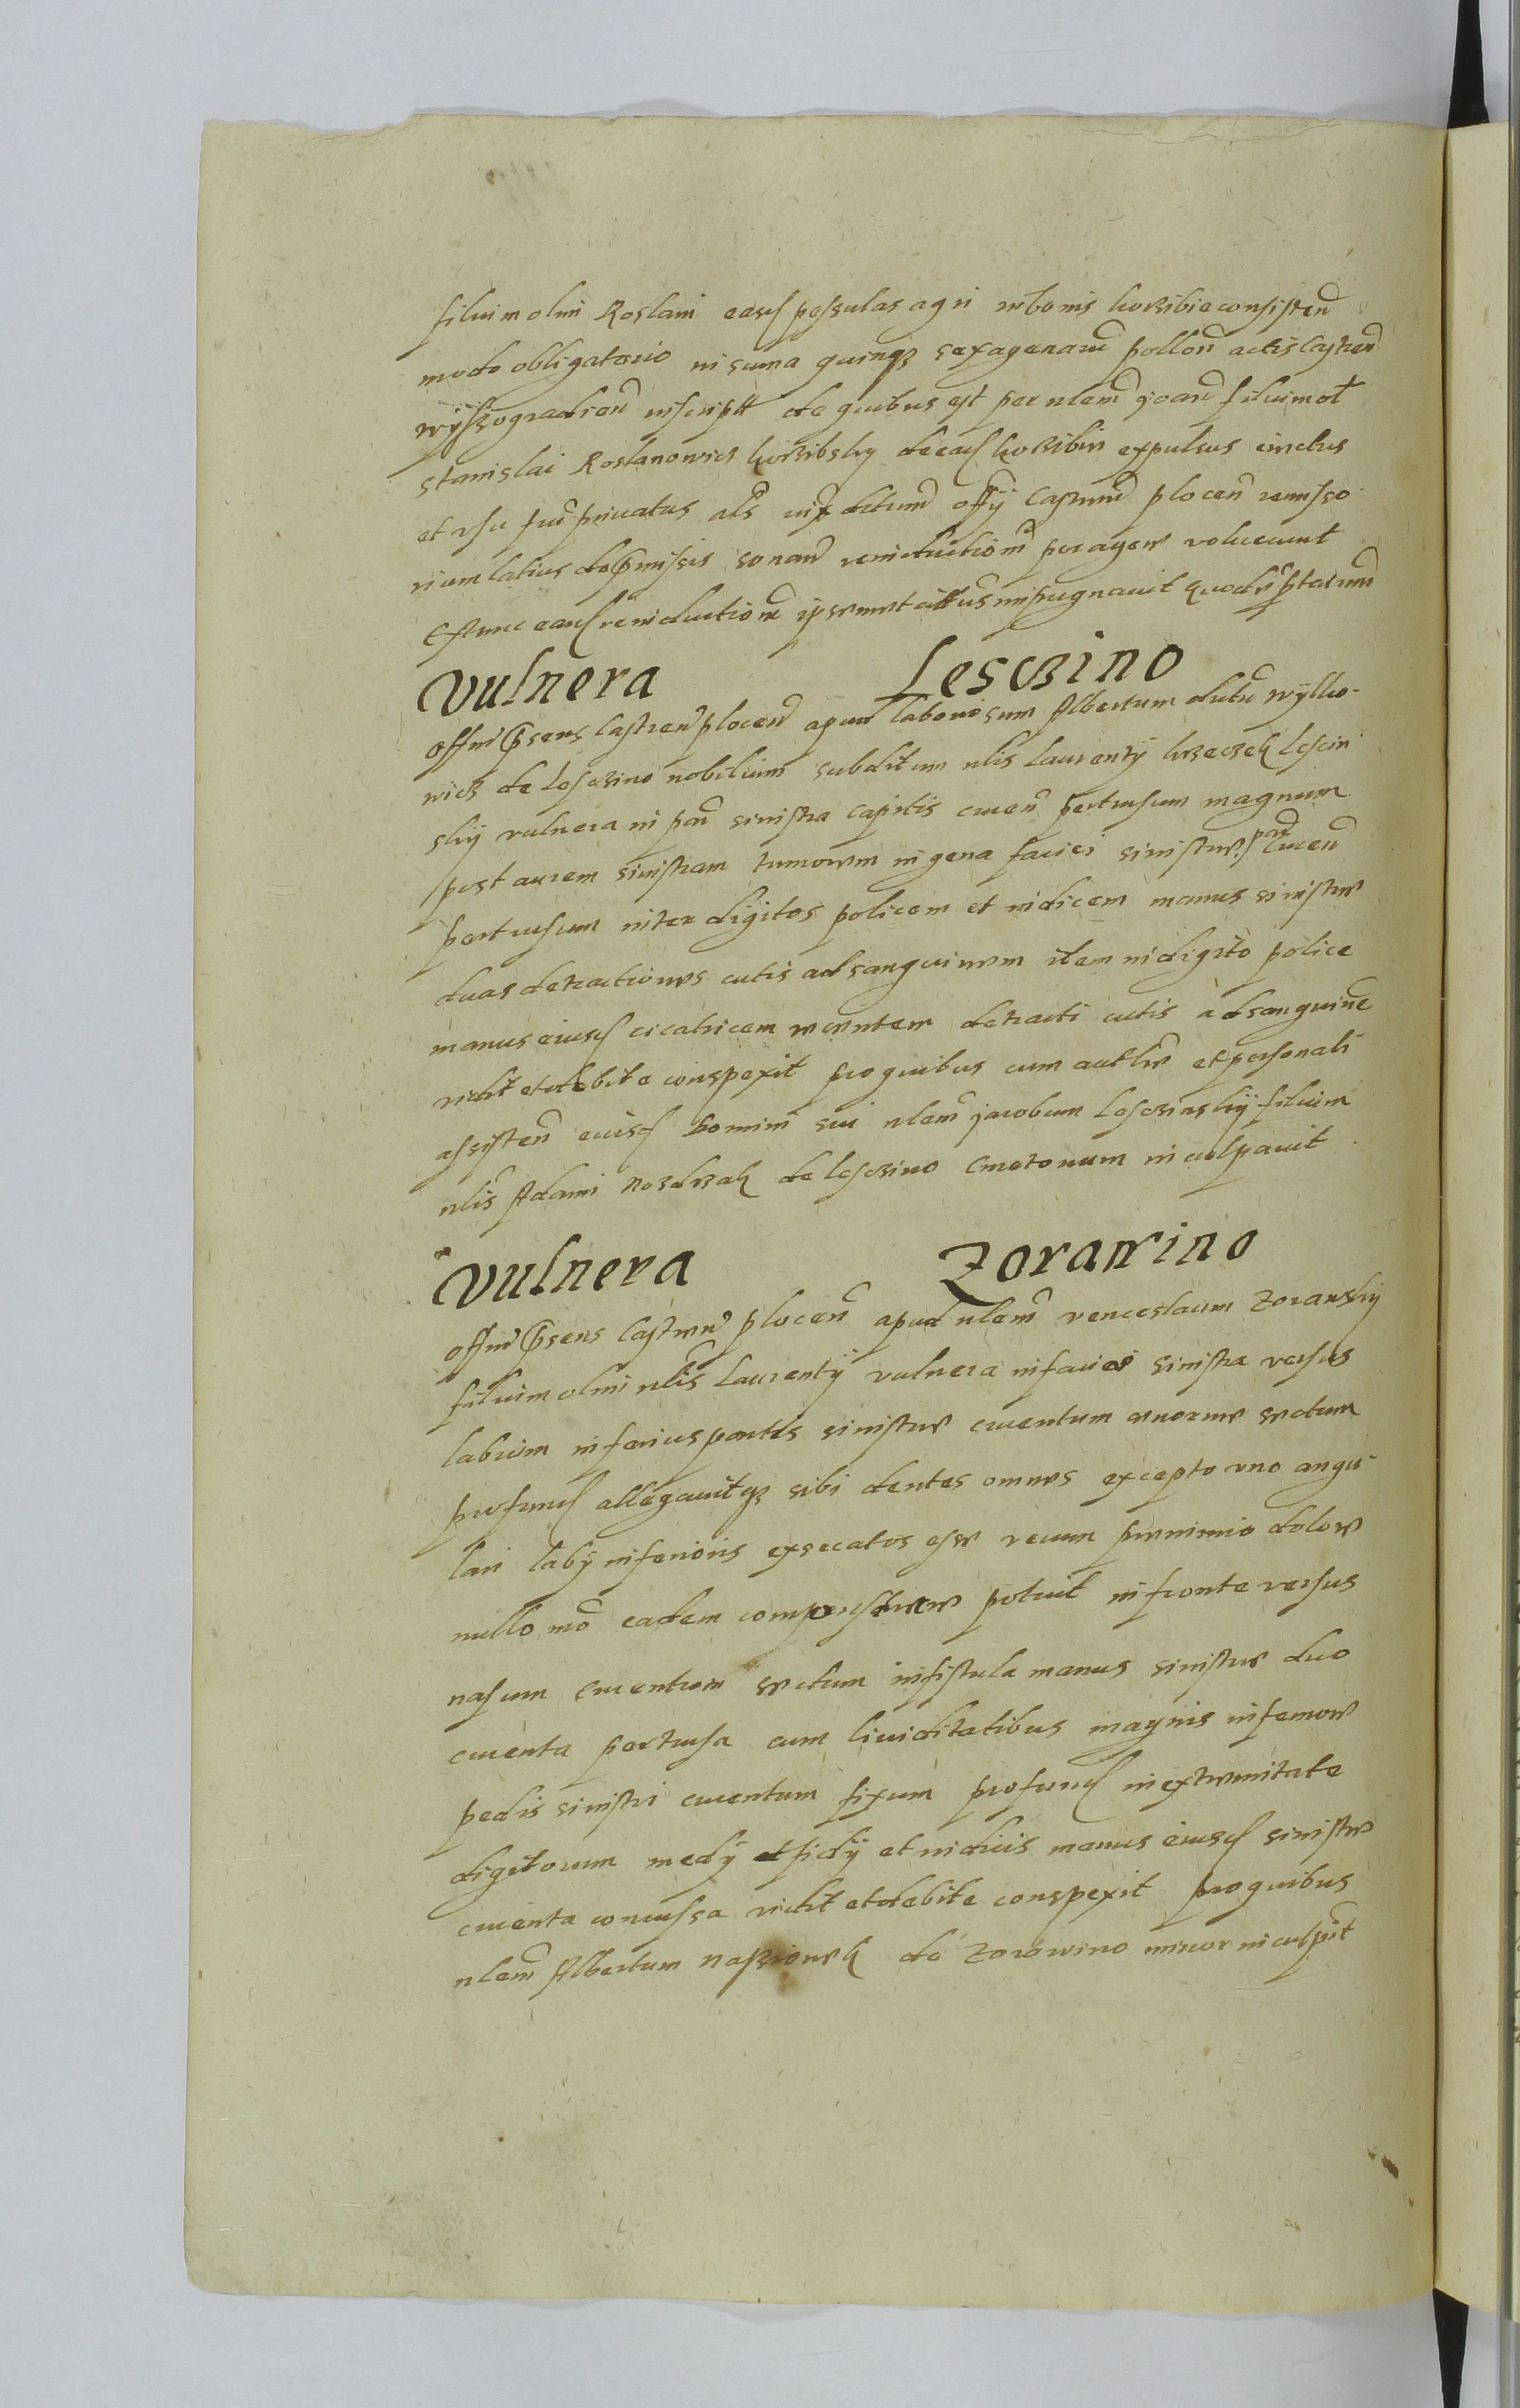 filium olim Roslani eascz pessulas agri in bonis korzibie consisten
modo obligatorio in suma quinqz sexagenaru pollon actis Castren
wyszogradien inscriptt de quibus est per nlem joan filium ol
Stanislai Roslanowicz korzibsky de eacz korzibie expulsus eiectus
et usu fru privatus als iuxta off Castren plocen remisso
rium latius de pmissis sonan reinductiom peragere voluerunt
Extunc eancz reinductiom ipse impugnavit quod
Vulnera Lesczino
Offm psens Castren plocen apud laboriosum Albertum dictu wylko-
wicz de Lesczino nobilium subditum nlis Laurentij krzeczek Lescin
skij vulnera in par sinistra capitis cruen pertusum magnum
post aurem sinistram tumorem in gena faciei sinistre par cruen
pertusum inter digitos policem et indicem manus sinistre
duas detractiones cutis ad sanguinem item in digito police
manus eiuscz cicatricem recentem detracti cutis ad sanguine
vidit et debite conspexit pro quibus cum autthe et personali
assisten eiuscz Domini sui nlem jacobum Lesczinskij filium
nlis Adami Nozdrzak de lesczino Cmetonum inculpavit
Vulnera Zorawino
Offm psens Castren plocen apud nlem venceslaum Zoranskij
filium olim nlis Laurentij vulnera in faciei sinistra versus
labrum inferius partis sinistre cruentum enorme sectum
profuncz allegavitqz sibi dentes omnes excepto uno angu-
lari labij inferioris exsecatos esse verum pre nimio dolore
nullo mo eadem potuit in fronte versus
nasum cruentum sectum in fistula manus sinistre duo
cruenta pertusa cum lividitatibus magnis in femore
pedis sinistri cruentum fixum profuncz in extremitate
digitorum medij et indicis manus eiuscz sinistre
cruenta concussa vidit et debite conspexit pro quibus
nlem Albertum Naszionek de Zorawino minor inculpit